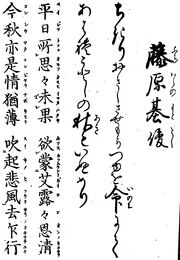 藤原基俊
ちきりおきしさせもかつゆを命にて
あはれことしの秋もいぬめり
平日所思々未果 欲蒙艾露々恩清
今秋亦是情猶薄 吹起悲風去乍行